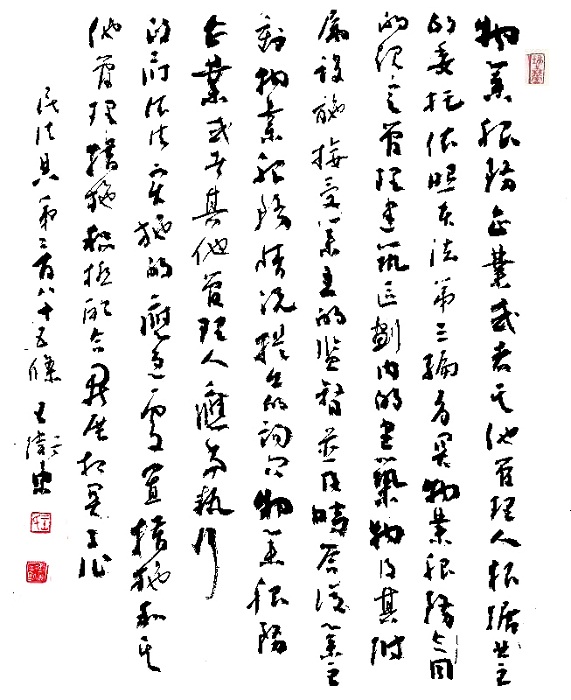 物業服務企業或者其他管理人根據业主
的委托依照本法第三编有関物業服務合同
的規定管理建築區劃内的建築物及其附
属設施接受業主的監督並及時答復業主
對物業服務情况提出的詢问物業服務
企業或者其他管理人應當執行
政府依法實施的應急處置措施和其
他管理措施積極配合開展相関工作
民法典第二百八十五條 王衛東